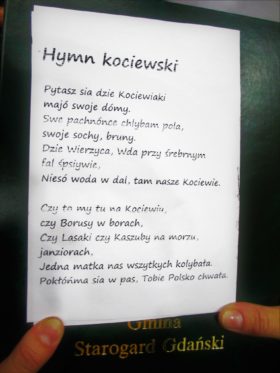 Hymn kociewski
Pytasz sia dzie Kociewiaki
majó swoje dómy.
Swe pachnónce chlybam pola,
swoje sochy, bruny.
Dzie Wierzyca, Wda przy śrebrnym
fal śpsiywie,
Niesó woda w dal, tam nasze Kociewie.
Czy to my tu na Kociewiu,
czy Borusy w borach,
Czy Lasaki czy Kaszuby na morzu,
janziorach.
Jedna matka nas wszytkych kolybała.
Pokłóńma sia w pas, Tobie Polsko chwała.
Gmina
Starogard Gdański